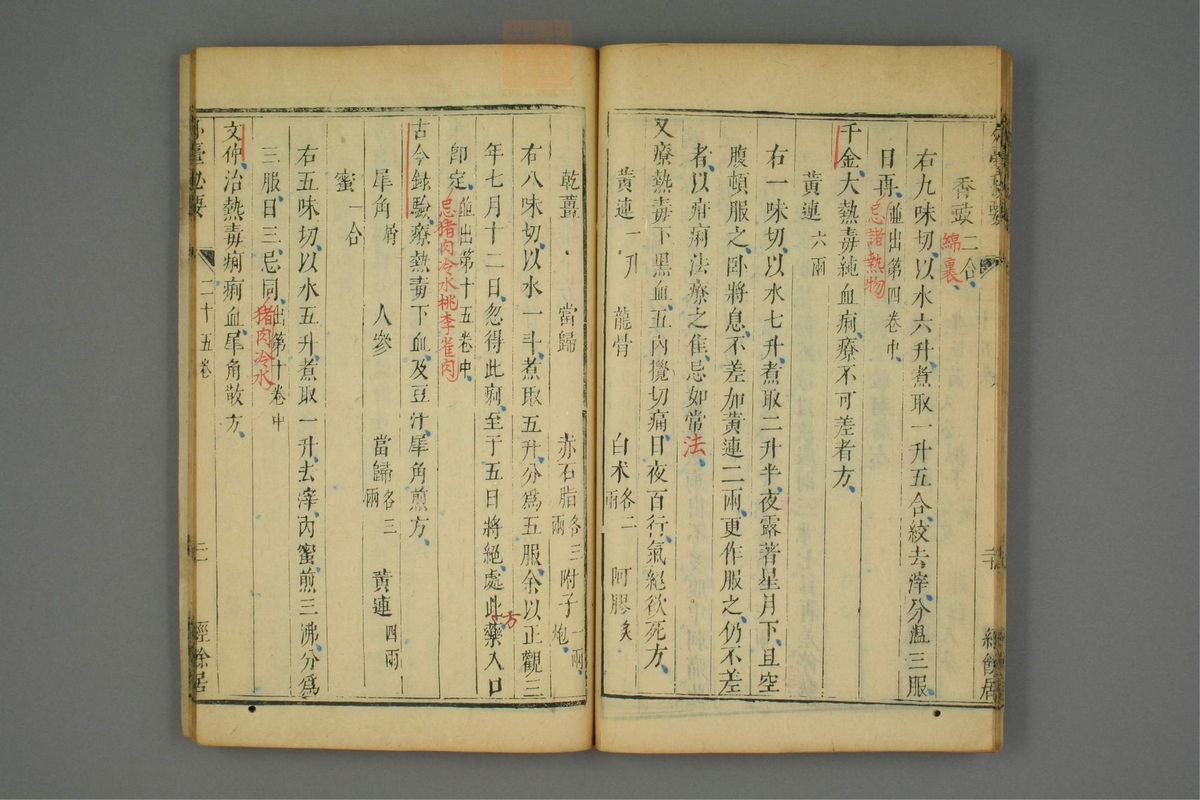 香豉二合
綿裏
右九味切以水六升煮取一升五合絞去滓分溫三服
日再並出第四卷中
忌諸熱物
千金大熱毒純血痢療不可差者方
黃連六兩
右一味切以水七升煮取二升半夜露著星月下旦空
腹頓服之臥將息不差加黃連二兩更作服之仍不差
者以疳痢法療之隹忌如常法
又療熱毒下黑血五內攪切痛日夜百行氣絕欲死方
黃連一升 龍骨 白术各二兩 阿膠炙
乾薑 當歸 赤石脂各三兩 附子一兩炮
右八味切以水一斗煮取五升分爲五服余以正觀三
年七月十二日忽得此痢至于五日將絕處此藥入口
方
即定並出第十五卷中
忌猪肉冷水桃李雀肉
古今錄驗療熱毒下血及豆汁犀角煎方
犀角屑 人參 當歸各三兩 黃連四兩
蜜一合
右五味切以水五升煮取一升去滓內蜜煎三沸分爲
三服日三忌同出第十卷中
猪肉冷水
文仲治熱毒痢痢血犀角散方
二十五卷
經餘居